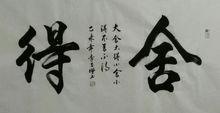 舍得
大舍大得小舍小
得不舍不得
乙未年